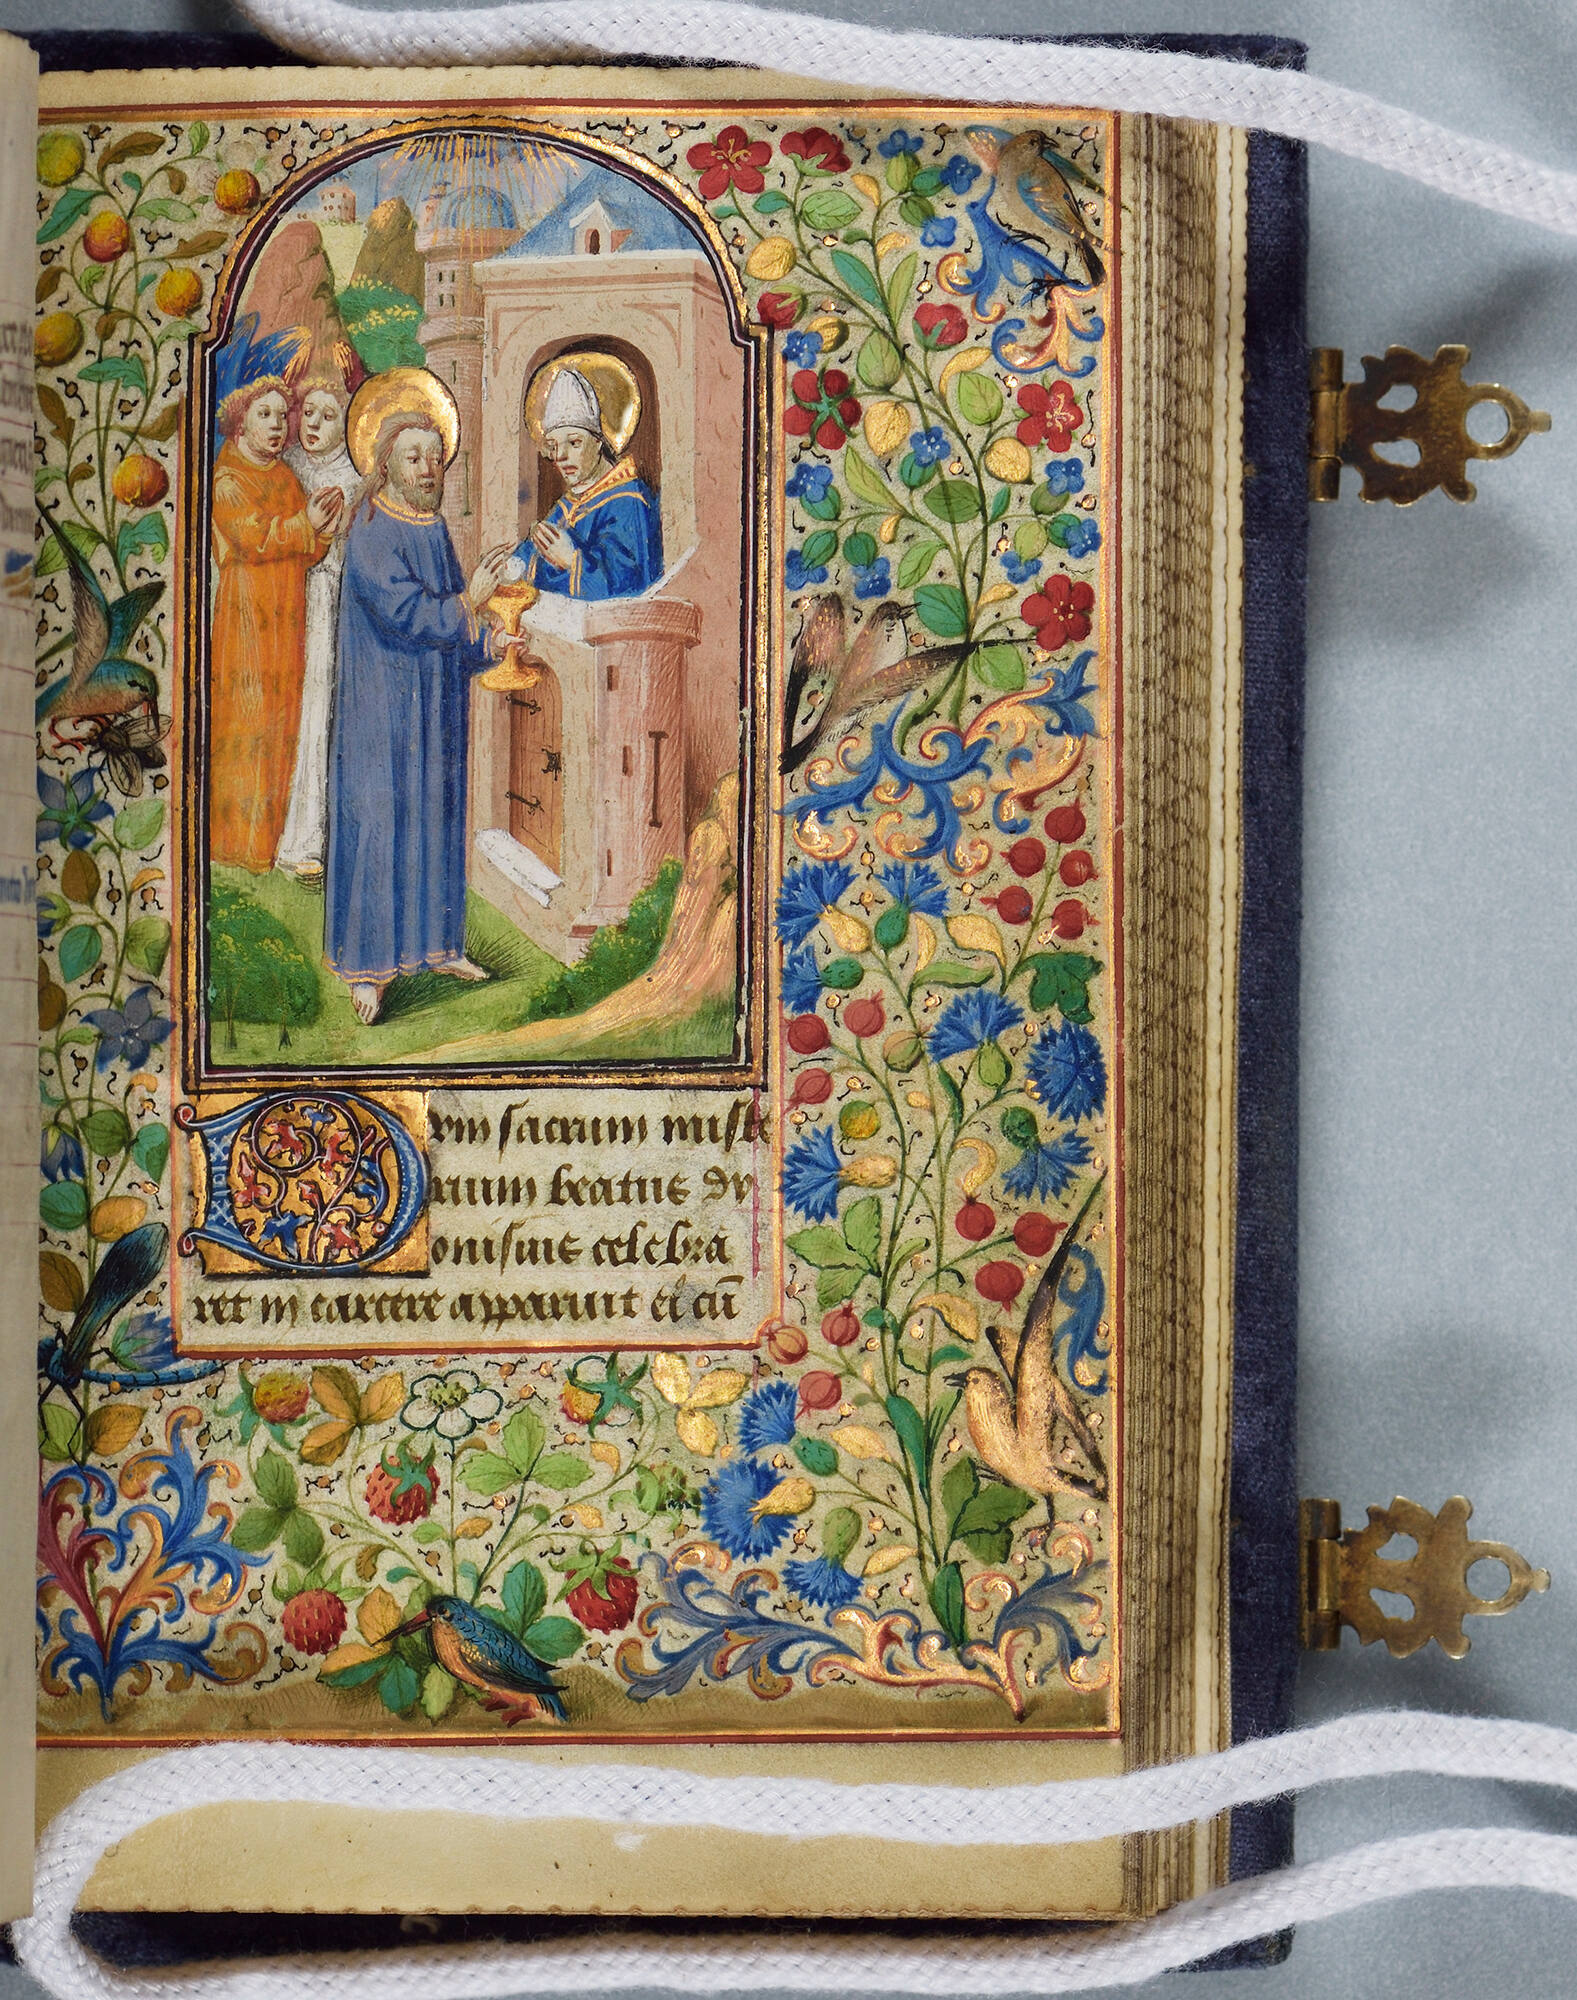 Dum sacrum miste
rium beatus dy
onisius celebra
ret in carcere apparuit ei cū